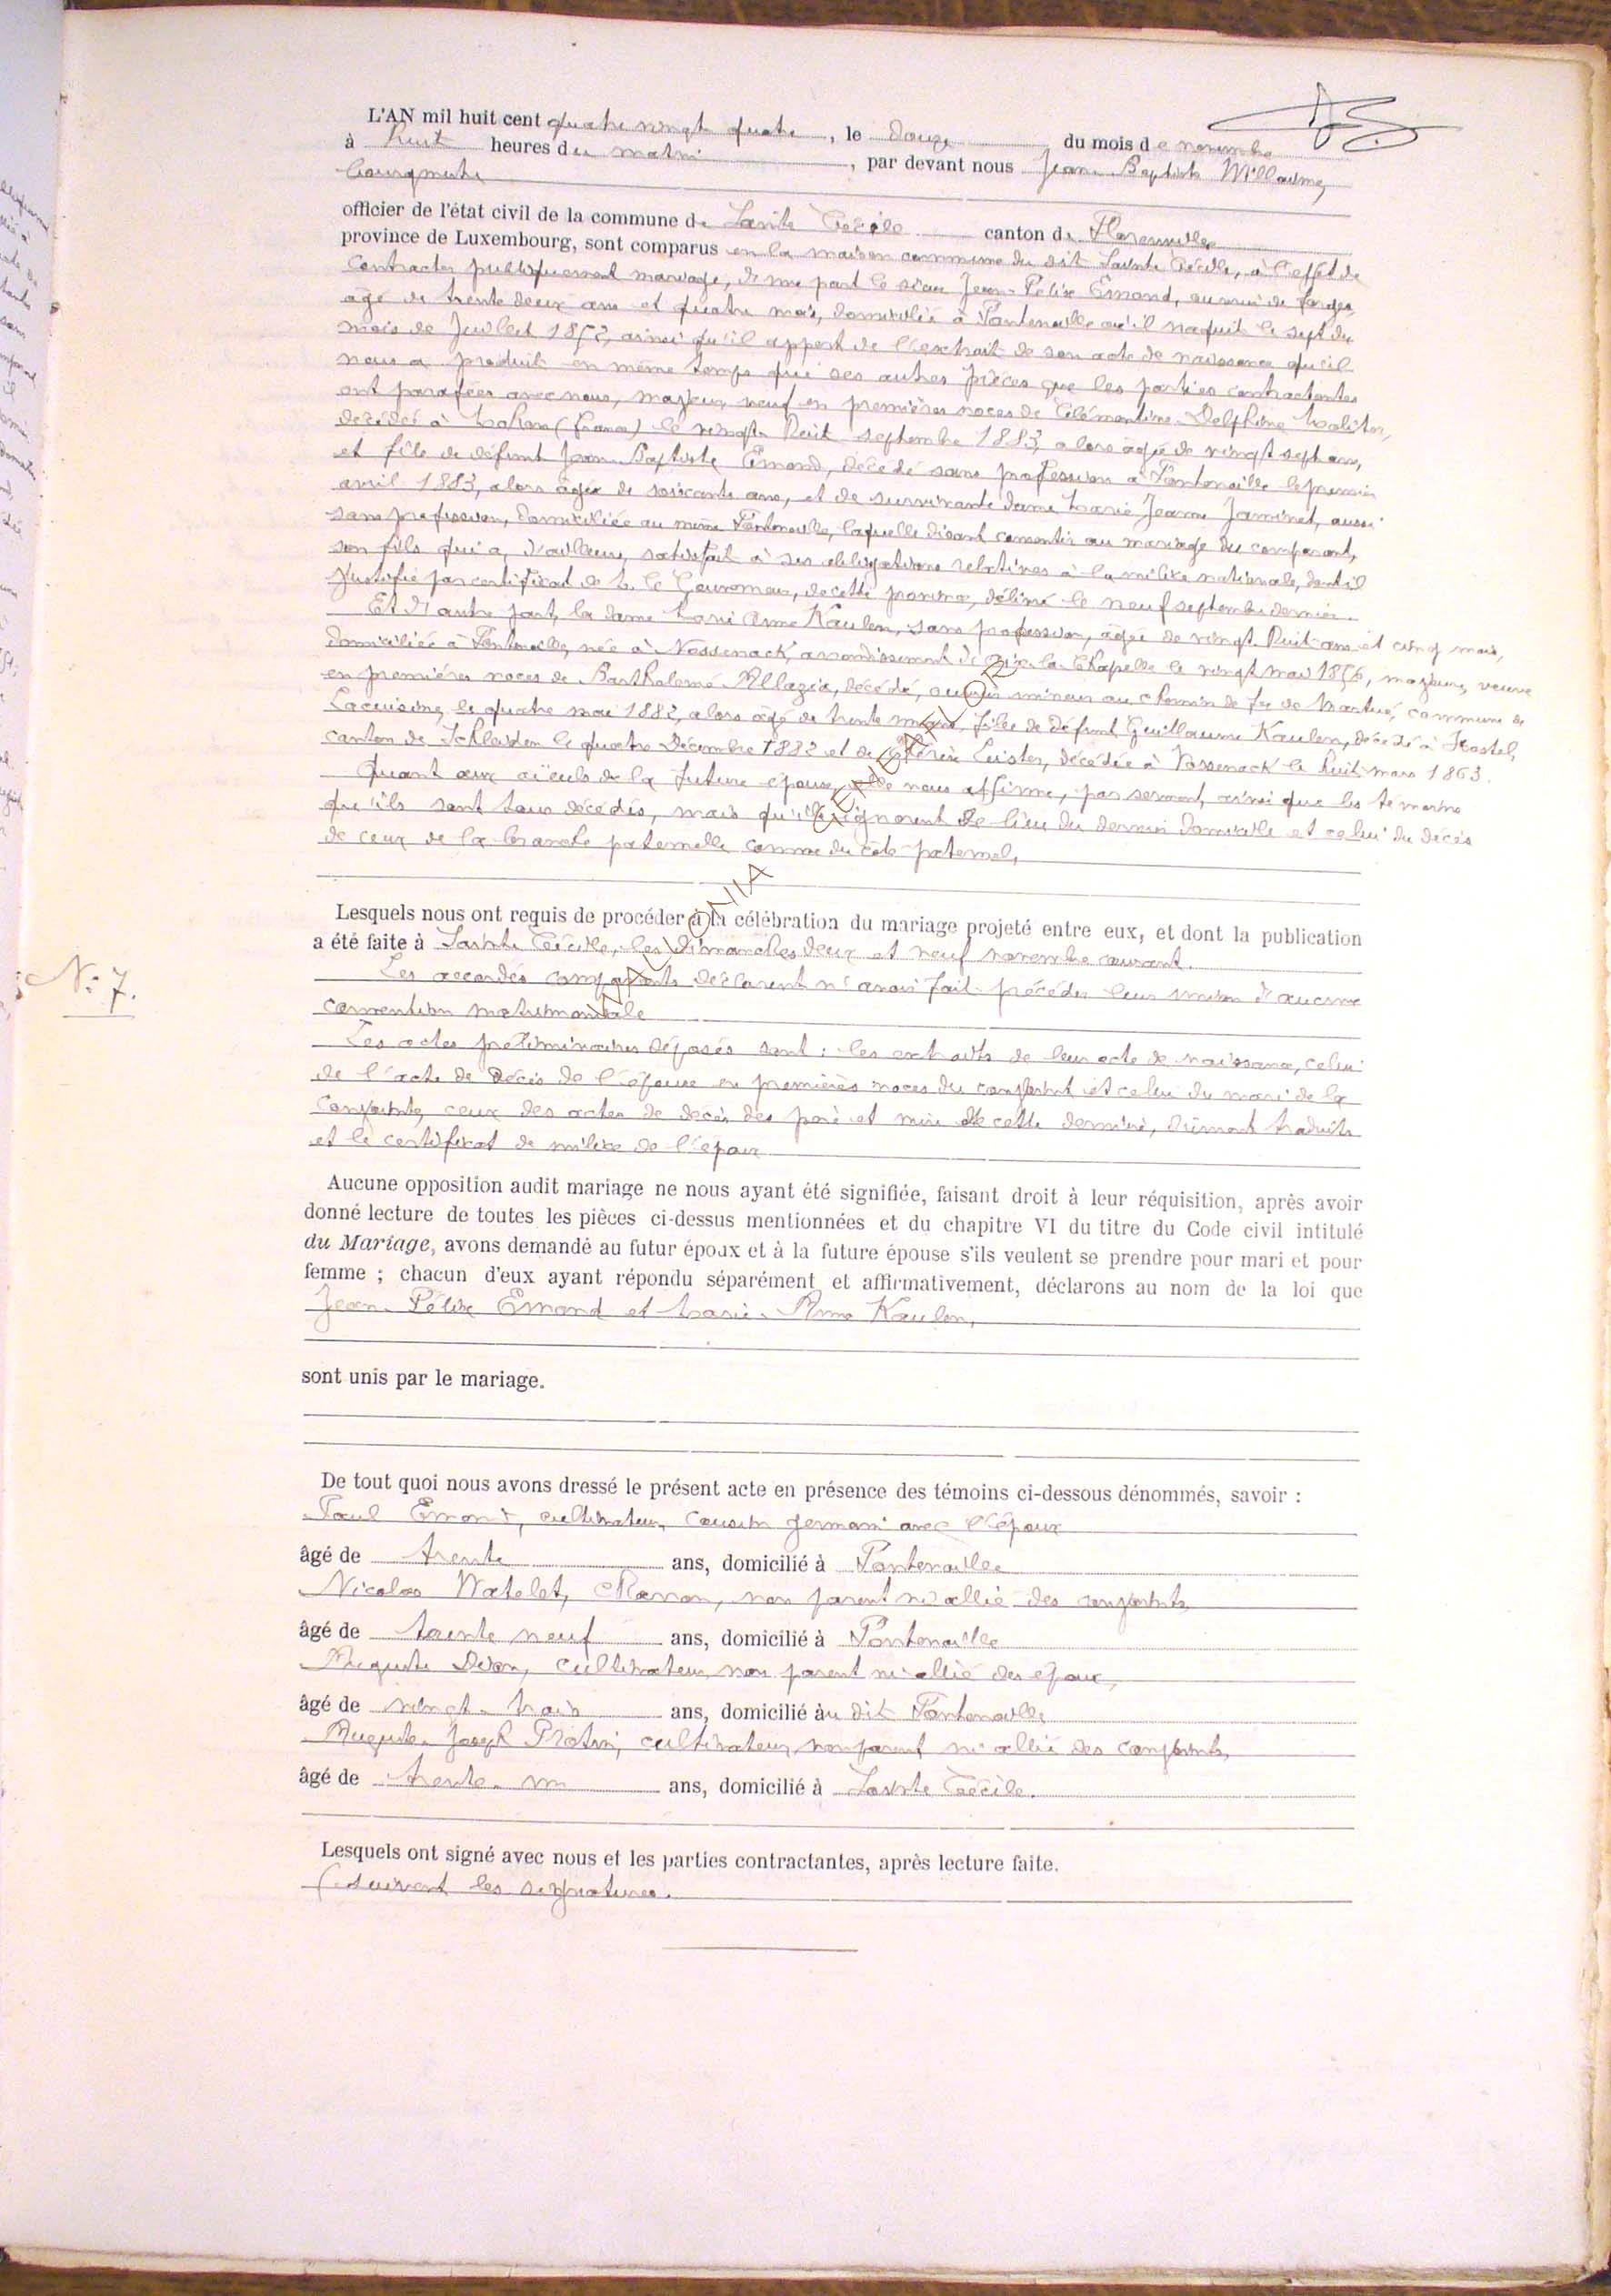 L'AN mil huit cent quatre vingt quatre, le douze du mois de novembre
à huit heures du matin, par devant nous Jean Baptiste Willaume,
bourgmestre
officier de l'état civil de la commune de Sainte Cécile canton de Florenville
province de Luxembourg, sont comparus en la maison commune du dit Sainte Cécile, à l'effet de
contracter publiquement mariage, d'une part le sieur Jean-Félix Émond, ouvrier de forges,
âgé de trente deux ans et quatre mois, domicilié à Fontenoille où il naquit le sept du
mois de Juillet 1852, ainsi qu'il appert de l'extrait de son acte de naissance qu'il
nous a produit en même temps que ses autres pièces que les parties contractantes
ont parafées avec nous, majeur, veuf en premières noces de Clémentine-Delphine
décédée à (France) le vingt-huit septembre 1883, alors âgée de vingt sept ans,
et fils de défunt Jean-Baptiste Émond, décédé sans profession à Fontenoille le premier
avril 1883, alors âgé de soixante ans, et de survivante dame Marie Jeanne Jaminet, aussi
sans profession, domiciliée au même Fontenoille, laquelle disant consentir au mariage du comparant,
son fils qui a, d'ailleurs, satisfait à ses obligations relatives à la milice nationale, dont il
justifie par certificat de M. le Gouverneur, de cette province, délivré le neuf septembre dernier.
Et d'autre part, la dame Marie Anne Kaulen, sans profession, âgée de vingt-huit ans et cinq mois,
domiciliée à Fontenoille, née à Vossenack, arrondissement d'Aix-la-Chapelle le vingt mai 1856, majeure, veuve
en premières noces de Barthelemé décédé, ouvrier mineur au chemin de fer de Martué, commune de
Lacuisine, le quatre mai 1882, alors âgé de trente fille de défunt Guillaume Kaulen, décédé à Hostel,
canton de Schleiden le quatre Décembre 1882 et de décédée à Vossenack le huit mars 1863.
Quant aux aïeuls de la future épouse, elle nous affirme, par serment, ainsi que les témoins
qu'ils sont tous décédés, mais qu'ils ignorent le lieu du dernier domicile et celui du décès
de ceux de la branche paternelle comme du côté paternel,
Lesquels nous ont requis de procéder à la célébration du mariage projeté entre eux, et dont la publication
a été faite à Sainte Cécile, les dimanches deux et neuf novembre courant.
N° 7.
Les accordés comparants déclarent n'avoir fait précéder leur union d'aucune
convention matrimoniale
Les actes préliminaires déposés sont : les extraits de leur acte de naissance, celui
de l'acte de décès de l'épouse en premières noces du conjoint et celui du mari de la
conjointe, ceux des actes de décès des père et mère de cette dernière, dûment traduits
et le certificat de milice de l'époux
Aucune opposition audit mariage ne nous ayant été signifiée, faisant droit à leur réquisition, après avoir
donné lecture de toutes les pièces ci-dessus mentionnées et du chapitre VI du titre du Code civil intitulé
du Mariage, avons demandé au futur époux et à la future épouse s'ils veulent se prendre pour mari et pour
femme ; chacun d'eux ayant répondu séparément et affirmativement, déclarons au nom de la loi que
Jean-Félix Émond et Marie-Anne Kaulen,
sont unis par le mariage.
De tout quoi nous avons dressé le présent acte en présence des témoins ci-dessous dénommés, savoir :
Paul Émond, cultivateur, cousin germain avec l'époux
âgé de trente ans, domicilié à Fontenoille
Nicolas Watelet, charron, non parent ni allié des conjoints
âgé de trente neuf ans, domicilié à Fontenoille
Auguste cultivateur, non parent ni allié des époux,
âgé de vingt-trois ans, domicilié au dit Fontenoille
Auguste-Joseph Protin, cultivateur, non parent ni allié des conjoints,
âgé de trente-un ans, domicilié à Sainte Cécile.
Lesquels ont signé avec nous et les parties contractantes, après lecture faite.
(Suivent les signatures.